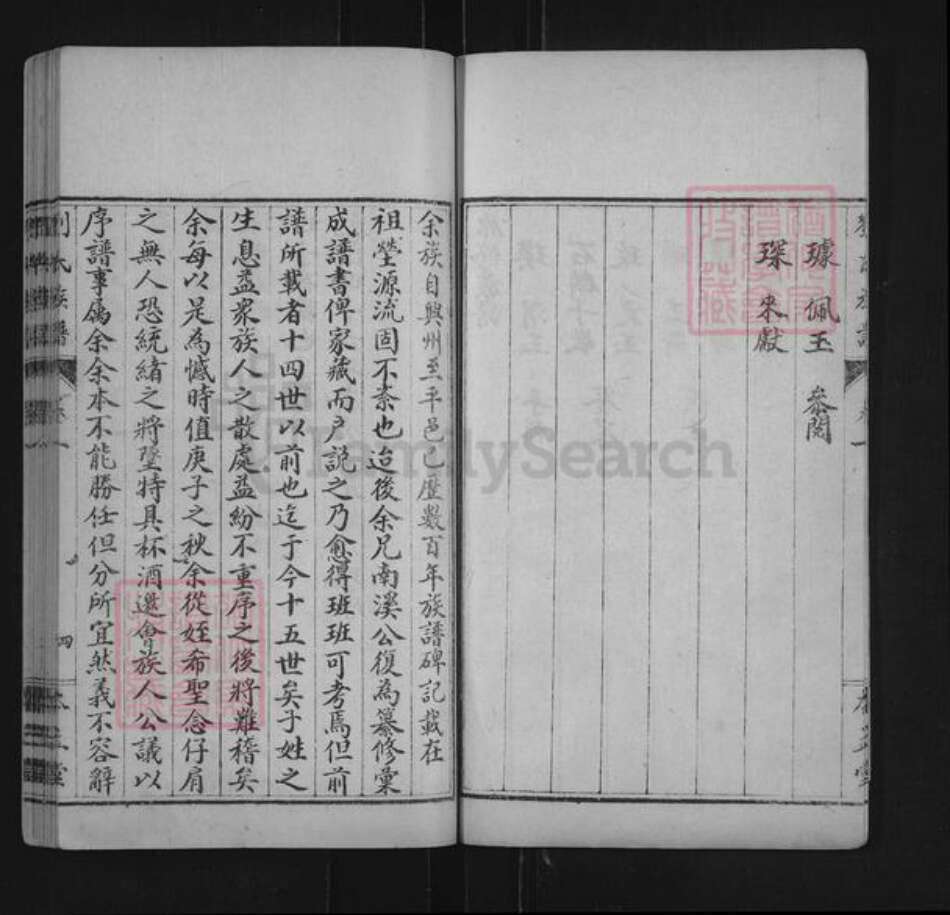 璩 佩玉 參閱
琛 來獻
余族自興州至平邑已歷數百年族譜碑記載在
祖塋源流固不紊也迨後余兄南溪公復為纂修彙
成譜書俾家藏而戶說之乃愈得班班可考焉但前
譜所載者十四世以前也迄于今十五世矣子姓之
生息益眾族人之散處益紛不重序之後將難稽矣
余每以是為憾時值庚子之秋余從姪希聖念仔肩
之無人恐統緒之將墜特具杯酒邀會族人公議以
序譜事屬余余本不能勝任但分所宜然義不容辭
劉氏族譜 卷一 四
FamilySearch